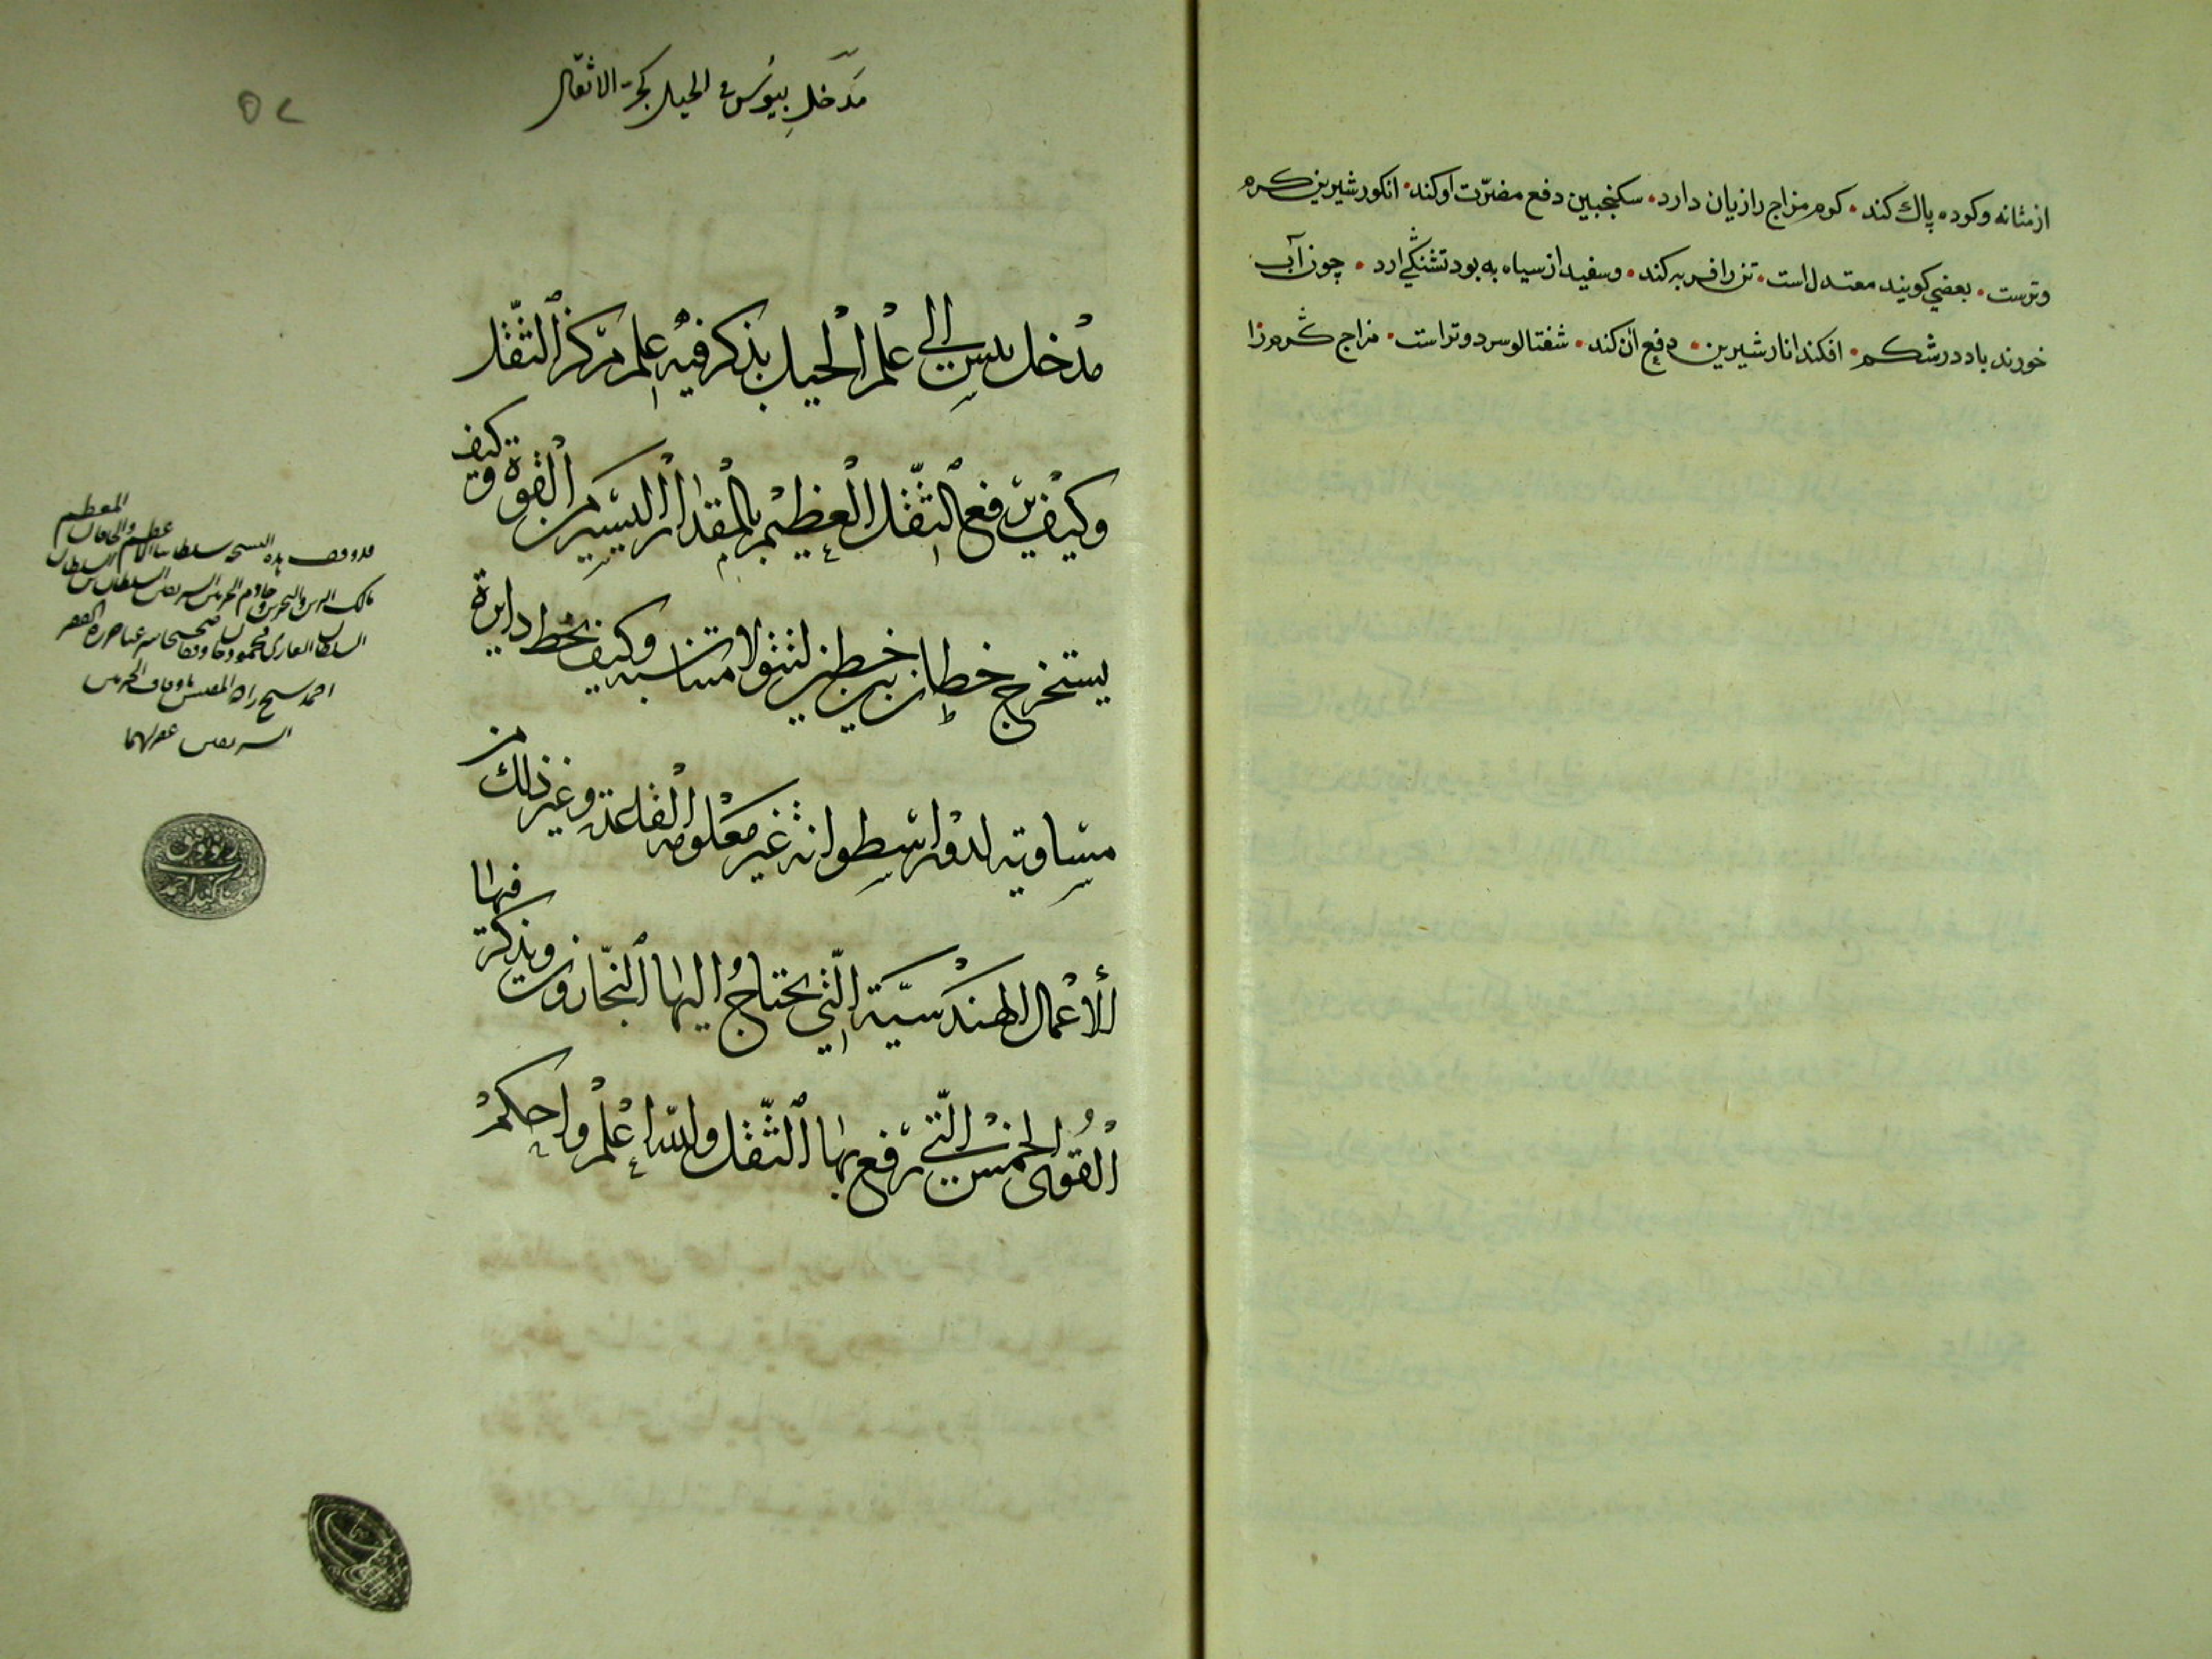 از مثانه وکرده پاك کند . کرم مزاج را زیان دارد . سکنجبین دفع مضرّت او کند . انکور شیرین کرم
وترست . بعضی کویند معتدل است . تن را فربه کند . وسفید از سیاه به بود تشنکی ارد . چون آب
خورند باد در شکم . افکند انار شیرین . دفع ان کند . شفتالو سرد وتر است . مزاج کرم را
مدخل بيوس في الحيل بجر الاثقال
مدخل ببس إلى علم الحيل يذكر فيه علم مركز الثقل
وكيف يرفع الثقل العظيم بالمقدار اليسير من القوة وكيف
يستخرج خطان بين خطين لتتولا متناسبه وكيف يخط دايرة
مساويه لدور اسطوانه غير معلومه القاعدة وغير ذلك من
الأعمال الهندسية التي يحتاج اليها النجارون ويذكر فيها
القوى الخمس التي ترفع بها الثقل والله اعلم واحكم
قد وقف هذه النسخة سلطاننا الاعظم والخاقان المعظم
مالك البرين والبحرين خادم الحرمين الشريفين السلطان بن السلطان
السلطان الغازي محمود خان وقفا صحيحا شرعيا حرره الفقير
احمد شيخ زاده المفتش باوقاف الحرمين
الشريفين غفر لهما